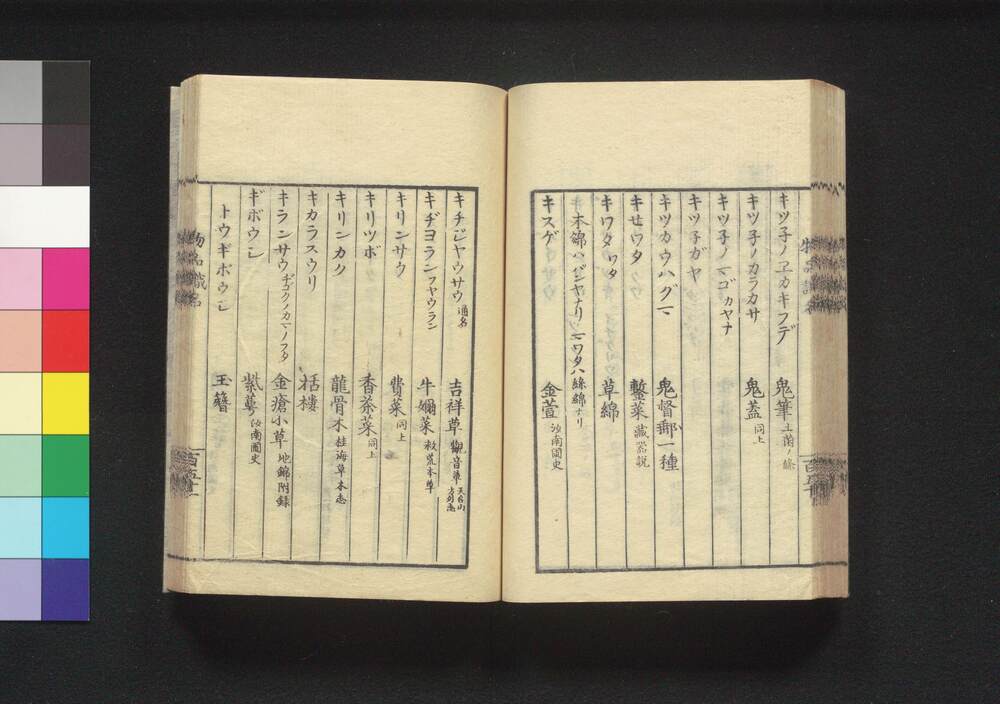 キツ子ノヱカキフデ 鬼筆 土菌ノ條
キツ子ノカラカサ 鬼蓋 同上
キツ子ノマゴカヤナ
キツ子ガヤ
キツカウハグマ 鬼督郵一種
キセワタ 鏨菜 藏器説
キワタ ワタ 草綿
木錦ハパンヤナリキワタハ絲綿ナリ
キスゲ 金萱 汝南圃史
キチジヤウサウ 通名 吉祥草 觀音草 天台山方外志
キヂヨラン フヤウラン 牛嬭菜 救荒本草
キリンサウ 費菜 同上
キリツボ 香茶菜 同上
キリンカク 龍骨木 桂海草木志
キカラスウリ 栝樓
キランサウ ヂゴクノカマノフタ 金瘡小草 地錦附録
ギボウシ 紫萼 汝南圃史
トウギボウシ 玉簪
物品識名